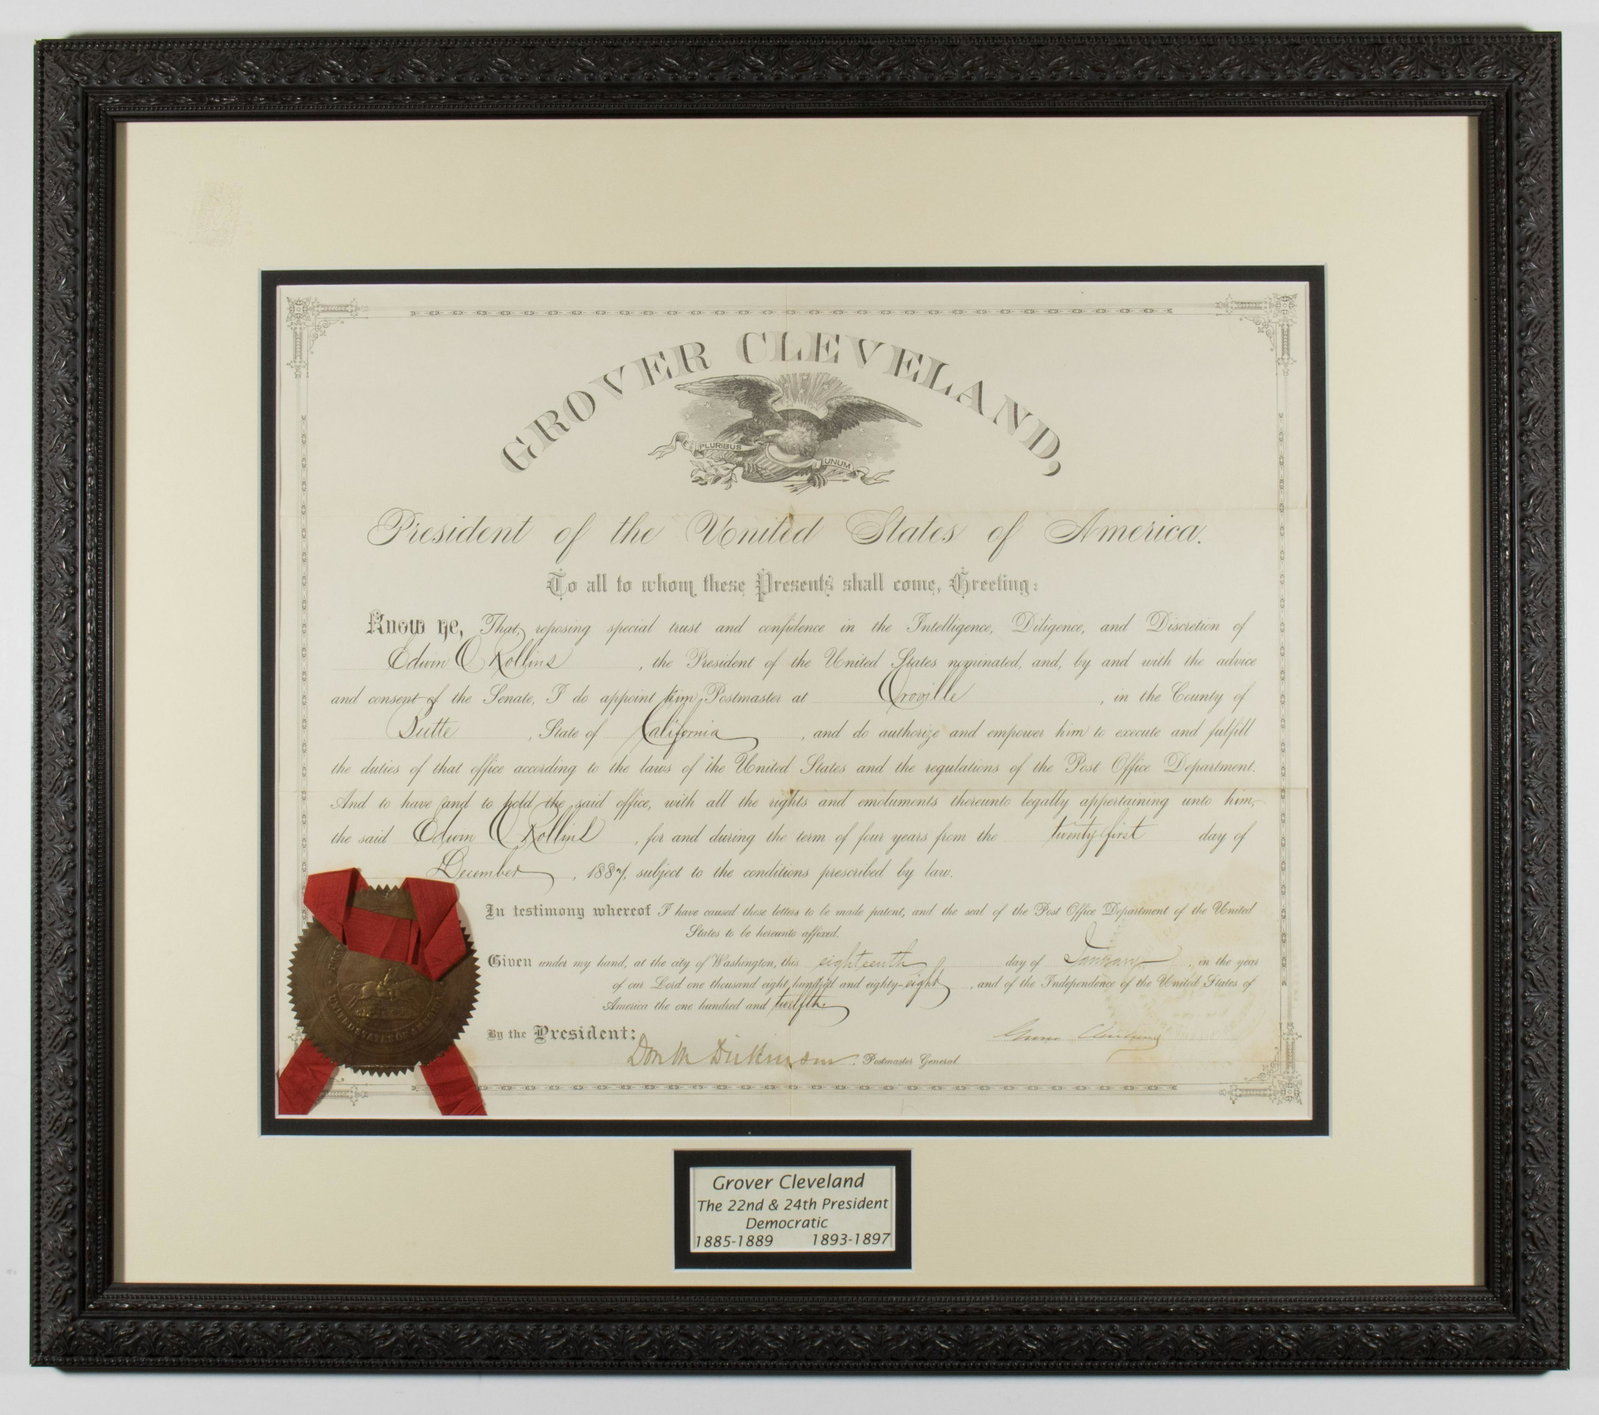 GROVER CLEVELAND,
PLURIBUS
UNUM
President of the United States of America.
To all to whom these Presents shall come, Greeting:
Know ye, That, reposing special trust and confidence in the Intelligence, Diligence, and Discretion of
Edwin O Rollins, the President of the United States nominated, and, by and with the advice
and consent of the Senate, I do appoint him Postmaster at Oroville, in the County of
Butte, State of California, and do authorize and empower him to execute and fulfill
the duties of that office according to the laws of the United States and the regulations of the Post Office Department.
And to have and to hold the said office, with all the rights and emoluments thereunto legally appertaining unto him,
the said Edwin O Rollins, for and during the term of four years from the twenty first day of
December, 1887, subject to the conditions prescribed by law.
In testimony whereof I have caused these letters to be made patent, and the seal of the Post Office Department of the United
States to be hereunto affixed.
Given under my hand, at the city of Washington, this eighteenth day of January, in the year
of our Lord one thousand eight hundred and eighty-eight, and of the Independence of the United States of
America the one hundred and twelfth
By the President: Grover Cleveland
Don M Dickinson. Postmaster General
Grover Cleveland
The 22nd & 24th President
Democratic
1885-1889 1893-1897